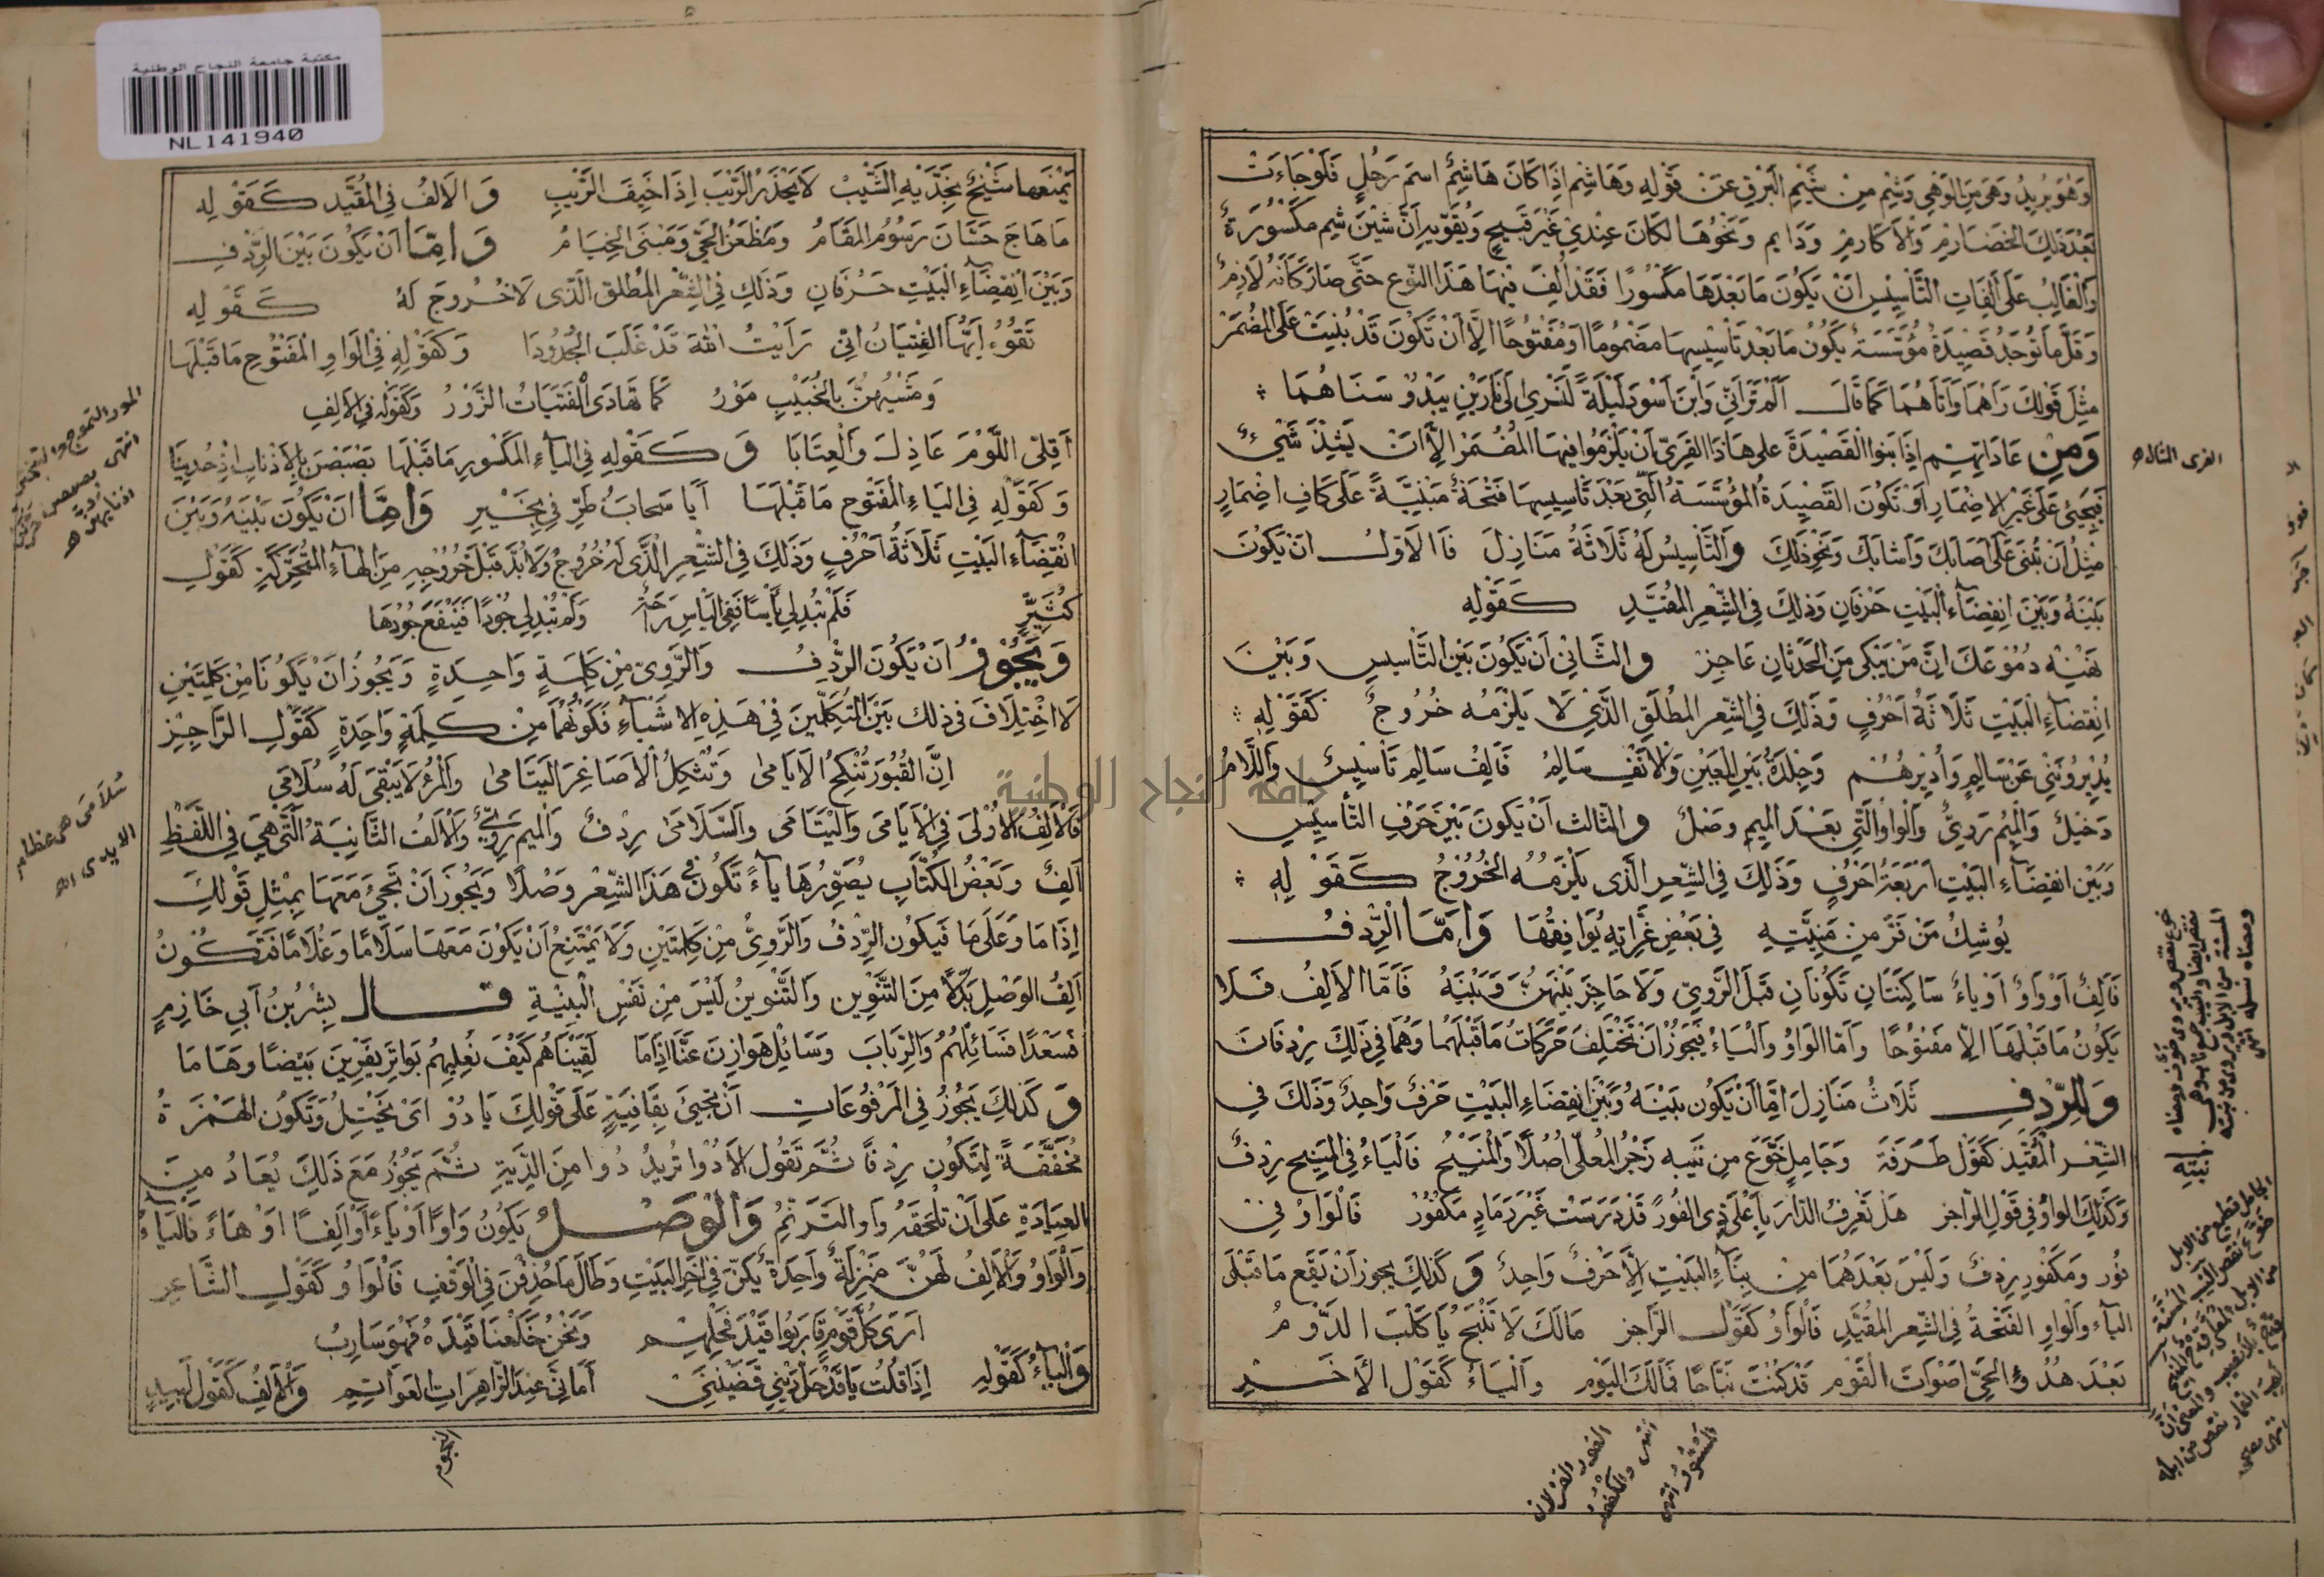 وَهُوَ يُرِيدُ وَهَى مِنَ الوَهْىِ وَشِمْ مِنْ شَيْمِ البَرْقِ عَنْ قَوْلِهِ وَهَاشِم اِذَا كَانَ هَاشِمٌ اسمَ رَجُلٍ فَلَوْ جَاءَتْ
بَعْدَ ذٰلِكَ الخَضَارِم وَالاَكَارِم وَدَايم وَنَحْوُهَا لَكَانَ عِنْدِي غَيْرَ قَبِيحٍ وَيُقَوِّيهِ اَنَّ شِيْنَ شِم مَكْسُورَةٌ
وَالْغَالِبُ عَلَى اَلِفَاتِ التَّأْسِيْسِ انْ يَكُونَ مَا بَعْدَهَا مَكْسُورًا فَقَدْ اُلِفَ فِيْهَا هَذَا النَّوع حَتَّى صَارَ كَاَنَّهُ لَازِمٌ
وَقَلَّمَا تُوجَدُ قَصِيْدَةٌ مُؤَسَّسَةٌ يَكُونُ مَا بَعْدَ تَأْسِيْسِهَا مَضْمُومًا اَوْ مَفْتُوحًا اِلَّا اَنْ تَكُونَ قَدْ بُنِيَتْ عَلَى المُضْمَرْ
مِثْلَ قَوْلِكَ رَاَهُمَا وَاَتَاهُمَا كَمَا قَالَ اَلَمْ تَرَ اَنِّي وَابْنَ اَسْوَدَ لَيْلَةً لَنَسْرِي اِلَى نَارَيْنِ يَبْدُو سَنَاهُمَا
وَمِنْ عَادَاتِهِم اِذَا بَنَوا القَصِيْدَةَ على هَذَا القَرِىِّ اَنْ يَلْزَمُوا فِيْهَا المُضْمَرْ اِلَّا اَنْ يَشِذَّ شَيْءٌ
فَيَجِئ عَلَى غَيْرِ الاِضْمَارِ اَوْ تَكُونَ القَصِيْدَةُ المُؤَسَّسَةُ الَّتِي بَعْدَ تَاسِيسِهَا فَتْحَةٌ مَبْنِيَّةً عَلَى كَافِ اضْمَارٍ
مِثْلُ اَنْ تُبْنَى عَلَى اَصَابَكَ وَاَشَابَكَ وَنَحْوِ ذٰلِكَ وَالتَّأسِيْسُ لَهُ ثَلَاثَةُ مَنَازِلَ فَالاَوَّلُ انْ يَكُونَ
بَيْنَهُ وَبَيْنَ اِنْقِضَاءِ البَيْتِ حَرْفَانِ وَذٰلِكَ فِي الشِّعْرِ المُقَيَّدِ كَقَوْلِهِ
نَهْنِهْ دُمُوْعَكَ اِنَّ مَنْ يَبْكِى مِنَ الحَدَثَانِ عَاجِزْ وَالثَّانِي اَنْ يَكُونَ بَيْنَ التَّأسيسِ وَبَيْنَ
انْقِضَاءِ البَيْتِ ثَلَاثَةُ اَحْرُفٍ وَذَلِكَ فِي الشِّعْرِ المُطْلَقِ الَّذِي لَا يَلْزَمُهُ خُرُوجٌ كَقَوْلِهِ
يُدِيْرُونَنِي عَنْ سَالِمٍ وَاُدِيْرُهُمْ وَجِلْدَةُ بَيْنَ العَيْنِ وَالاَنْفِ سَالِمُ فَاَلِفُ سَالِم تَأْسِيْسٌ وَاللَّامُ
دَخِيلٌ وَالمِيْمُ رَوِيٌّ وَالوَاوُ الَّتِي بَعْدَ المِيْمِ وَصْلٌ وَالثَّالث اَنْ يَكُونَ بَيْنَ حَرْفِ التَّأسِيْسِ
وَبَيْنَ انْقِضَاءِ البَيْتِ اَرْبَعَةُ اَحْرُفٍ وَذَلِكَ فِي الشِّعْرِ الَّذِى يَلْزَمُهُ الخُرُوجُ كَقَوْلِهِ
يُوشِكُ مَنْ فَرَّ مِنْ مَنِيَّتِهِ فِي بَعْضِ غِرَّاتِهِ يُوَافِقُهَا وَاَمَّا الرِّدفُ
فَاَلِفٌ اَوْ وَاوٌ اَوْ يَاءٌ سَاكِنَتَانِ تَكُونَانِ قَبْلَ الرَّوِيِّ وَلَا حَاجِزَ بَيْنَهُنَّ وَبَيْنَهُ فَاَمَّا الاَلِفُ فَلَا
يَكُونُ مَا قَبْلَهَا اِلَّا مَفْتُوحًا وَاَمَّا الوَاوُ وَاليَاءُ فَيَجُوزُ اَنْ تَخْتَلِفَ حَرَكَاتُ مَا قَبْلَهُمَا وَهُمَا فِي ذٰلِكَ رِدْفَانِ
وَلِلرِّدْفِ ثَلَاثُ مَنَازِلَ اِمَّا اَنْ يَكُونَ بَيْنَهُ وَبَيْنَ انْقِضَاءِ البَيْتِ حَرْفٌ وَاحِدٌ وَذَلكَ في
الشِّعْرِ المُقَيَّد كَقَوْلِ طَرَفَةَ وَجَامِلٍ خَوَّعَ مِن نَيْبِهِ زَجْرُ المُعَلَّى اُصُلاً وَالمَنِيْحْ فَاليَاءُ فِي المَنِيْحِ رِدْفٌ
وَكَذٰلِكَ الوَاوُ فِي قَوْلِ الرَّاجز هَلْ تَعْرِفُ الدَّارَ بِاَعْلَى ذِى القُورْ قَدْ دَرَسَتْ غَيْرَ رَمَادٍ مَكْفُورْ فَالْوَاوُ فِي
قُور وَمَكْفُور رِدْفٌ وَلَيْسَ بَعْدَهُمَا مِنْ بِنَاءِ البَيْتِ اِلَّا حَرْفٌ وَاحِدٌ وَكَذٰلِكَ يجوز اَنْ يَقَعَ مَا قَبْلَ
الياءِ وَالوَاوِ الفَتْحَةُ فِي الشِّعْرِ المُقَيَّدِ فَالْوَاوُ كَقَوْلِ الرَّاجز مَالَكَ لَا تَنْبَحُ يَا كَلْبَ الدَّوْمُ
بَعْدَ هُدُوءِ الحَيِّ اَصْوَاتَ القَوْم قَدْ كُنْتَ نَبَّاحًا فَمَالَكَ اليَوْم وَاليَاءُ كَقَوْلِ الاَخَر
القرى المثال اه
يَمْنَعُهَا شَيْخٌ بِخَدَّيْهِ الشَّيْبْ لَا يَحْذَرُ الرَّيْبَ اِذَا خِيْفَ الرَّيْبِ وَالاَلِفُ فِي المُقَيَّد كَقَوْلِهِ
مَا هَاجَ حَسَّانَ رَسُومُ المَقَامْ وَمَظْعَنُ الحَيِّ وَمَبْنَى الخِيَامْ وَاِمَّا اَنْ يَكُونَ بَيْنَ الرِّدْفِ
وَبَيْنَ اِنْقِضَاءِ الْبَيْتِ حَرْفَانِ وَذَلِكَ فِي الشِّعْرِ المُطْلق الَّذِى لَا خُرُوجَ لَهُ كَقَوْلِهِ
تَقَوَّهْ اَيُّهَا الفِتْيَانُ اِنِّي رَاَيْتُ اللّٰهَ قَدْ غَلَبَ الجُدُودَا وَكَقَوْلِهِ فِي الوَاوِ المَفْتُوْحِ مَا قَبْلَهَا
وَمَشْيُهُنَّ بِالخُبَيْبِ مَوْرُ كَمَا تَهَادَى الفَتَيَاتُ الزَّوْرُ وَكَقَوْلِهِ فِي الاَلِفِ
اَقِلِّى اللَّوْمَ عَاذِلَ وَالْعِتَابَا وَكَقَوْلِهِ فِي اليَاءِ المَكْسُورِ مَا قَبْلَهَا بَصْبَصْنَ بِالاَذْنَابِ اِذْ حُدِيْنَا
وَكَقَوْلِهِ فِي اليَاءِ المَفْتُوحِ مَا قَبْلَهَا اَيَا سَحَابُ طَرِّقِي بِخَيْرِ وَاِمَّا اَنْ يَكُونَ بَيْنَهُ وَبَيْنَ
انْقِضَاءِ البَيْتِ ثَلَاثَةُ اَحْرُفٍ وَذَلِكَ فِي الشِّعْرِ الَّذِى لَهُ خُرُوجٌ وَلَا بُدَّ قَبْلَ خُرُوْجِهِ مِنَ الهَاءِ المُتَحَرِّكَةِ كَقَوْلِ
كُثَيِّرٍ فَلَمْ تُبْدِ لِي يَأْسًا فَفِي اليَأسِ رَاحَةٌ وَلَمْ تُبْدِ لِي جُوْدًا فَيَنْفَعَ جُوْدُهَا
وَيَجُوزُ اَنْ يَكُونَ الرِّدْفُ وَالرَّوِيُّ مِنْ كَلِمَةٍ وَاحِدَةٍ وَيَجُوزُ اَنْ يَكُونَا مِنْ كَلِمَتَيْنِ
لَا اخْتِلَافَ فِي ذلك بَيْنَ المُتَكَلِّمِينَ فِي هَذِهِ الاَشْيَاءِ فَكَوْنُهُمَا مِنْ كَلِمَةٍ وَاحِدَةٍ كَقَوْلِ الرَّاجِزِ
اِنَّ القُبُورَ تُنْكِحُ الاَيَامَى وَتُثْكِلُ الاَصَاغِرَ اليَتَامَى وَالمَرْءُ لَا يَبْقَى لَهُ سُلَامَى
فَالاَلِفُ الاُوْلَى فِي الاَيَامَى وَاليَتَامَى وَالسُّلَامَى رِدْفٌ وَالميمِ رَوِيٌّ وَالاَلِفُ الثَّانِيَةُ الَّتِي هِيَ فِي اللَّفْظِ
اَلِفٌ وَبَعْضُ الكُتَّابِ يُصَوِّرُهَا يَاءً تَكُونُ فِي هَذَا الشِّعْرِ وَصْلًا وَيَجُوزَ اَنْ تَجِئَ مَعَهَا بِمِثْلِ قَوْلِكَ
اِذَا مَا وَعَلَى مَا فَيَكُونُ الرِّدْفُ وَالرَّوِيُّ مِنْ كَلِمَتَيْنِ وَلَا يَمْتَنِعُ اَنْ يَكُونَ مَعَهَا سَلَامًا وَغُلَامًا فَتَكُونُ
اَلِفُ الوَصْلِ بَدَلًا مِنَ التَّنْوِيْنِ وَالتَّنْوِينُ لَيْسَ مِنْ نَفْسِ الْبِنْيَةِ قَالَ بِشْرُ بْنُ اَبِي خَازِمٍ
فَسَعْدًا فَسَائِلْهُمْ وَالرِّبَابَ وَسَائِلْ هَوَازِنَ عَنَّا اِذَا مَا لَقِيْنَاهُم كَيْفَ نُعْلِيهِمُ بَوَاتِرَ يَفْرِيْنَ بَيْضًا وَهَامَا
وَكَذٰلِكَ يَجُوزُ فِي المَرْفُوعَاتِ اَنْ تَجِئَ بِقَافِيَةٍ عَلَى قَوْلِكَ يَا دُوْ اَىْ يَخْتِلُ وَتَكُونُ الهَمْزَةُ
مُخَفَّفَةً لِتَكُونَ رِدْفًا ثُمَّ تَقُولُ الاَدُوْا تُرِيْدُ دُوا مِنَ الدِّيَةِ ثُمَّ يَجُوزُ مَعَ ذٰلِكَ يُعَادُ مِنَ
العِيَادَةِ عَلَى اَنْ تَلْحَقَهُ وَاو التَرَنّمُ وَالْوَصْلُ يَكُونُ وَاوًا اَوْ يَاءً اَوْ اَلِفًا اَوْ هَاءً فَاليَاءُ
وَالوَاوُ وَالاَلِفُ لَهُنَّ مَنْزِلَةٌ وَاحِدَةٌ يَكُنَّ فِي آخِرِ البَيْتِ وَطَالَمَا حُذِفْنَ فِي الوَقْفِ فَالْوَاوُ كَقَوْلِ الشَّاعِرِ
اَرَى كُلَّ قَوْمٍ قَارَبُوا قَيْدَ فَحْلِهِم وَنَحْنُ خَلَعْنَا قَيْدَهُ فَهُوَ سَارِبُ
وَاليَاءُ كَقَوْلِهِ اِذَا قُلْتُ يَا قَدْ حَلَّ دَيْنِي قَضَيْنَنِي اَمَانِيَّ عِنْدَ الزَّاهِرَاتِ العَوَاتِمِ وَالاَلِفُ كَقَوْلِ لَبِيدٍ
سُلَامَى هى عظام
الايدى اهـ
النجوم
مكتبة جامعة النجاح الوطنية
NL141940
جامعة النجاح الوطنية